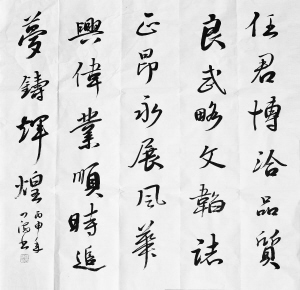 任君博洽品質
良武略文韜誌
正昂永展風華
興偉業順時追
夢鑄輝煌
丙申年